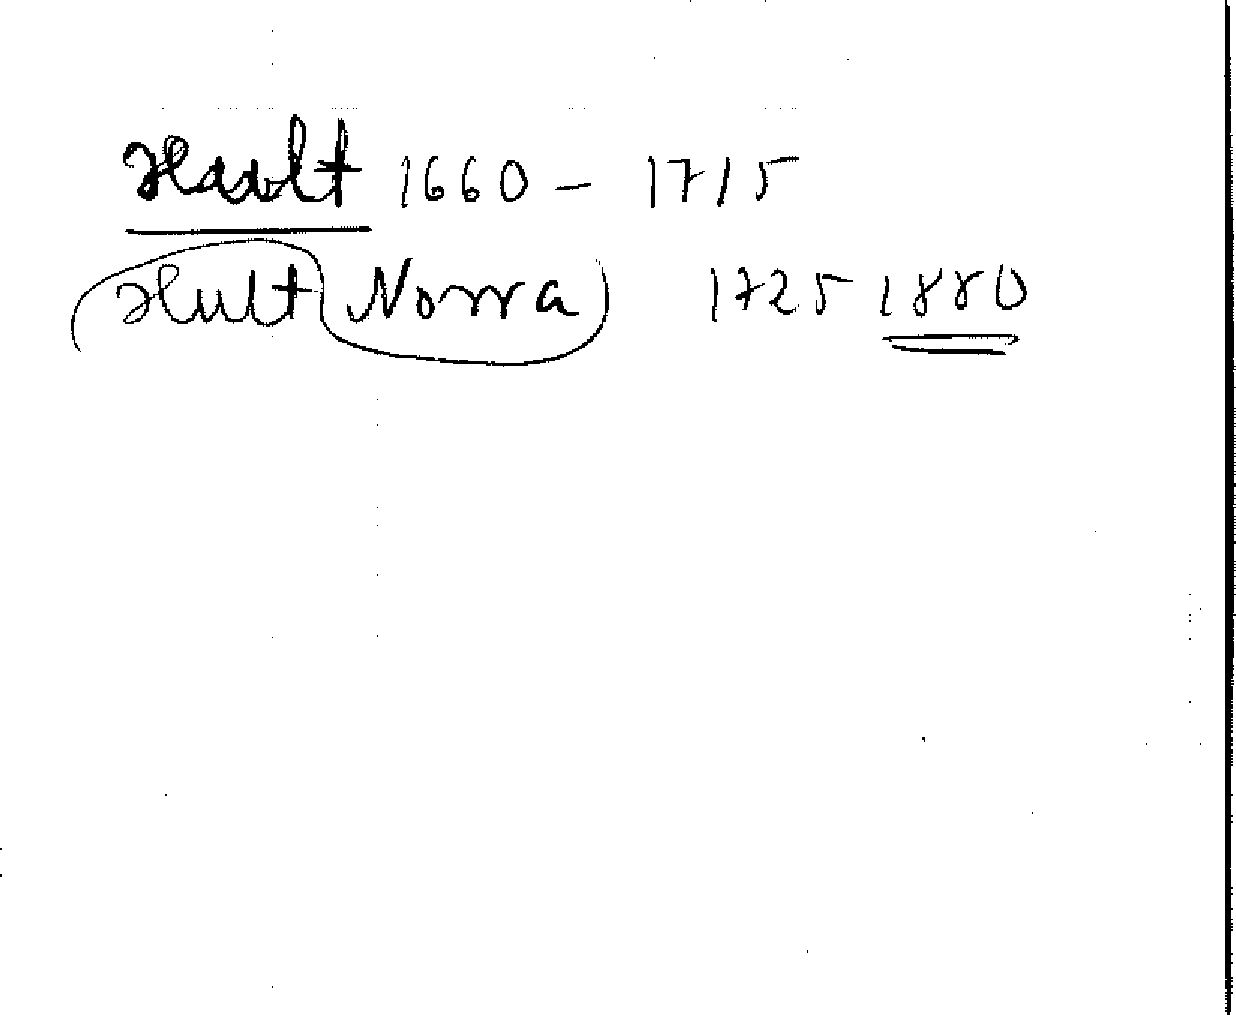 Hault 1660 - 1715
Hult Norra 1725 1880